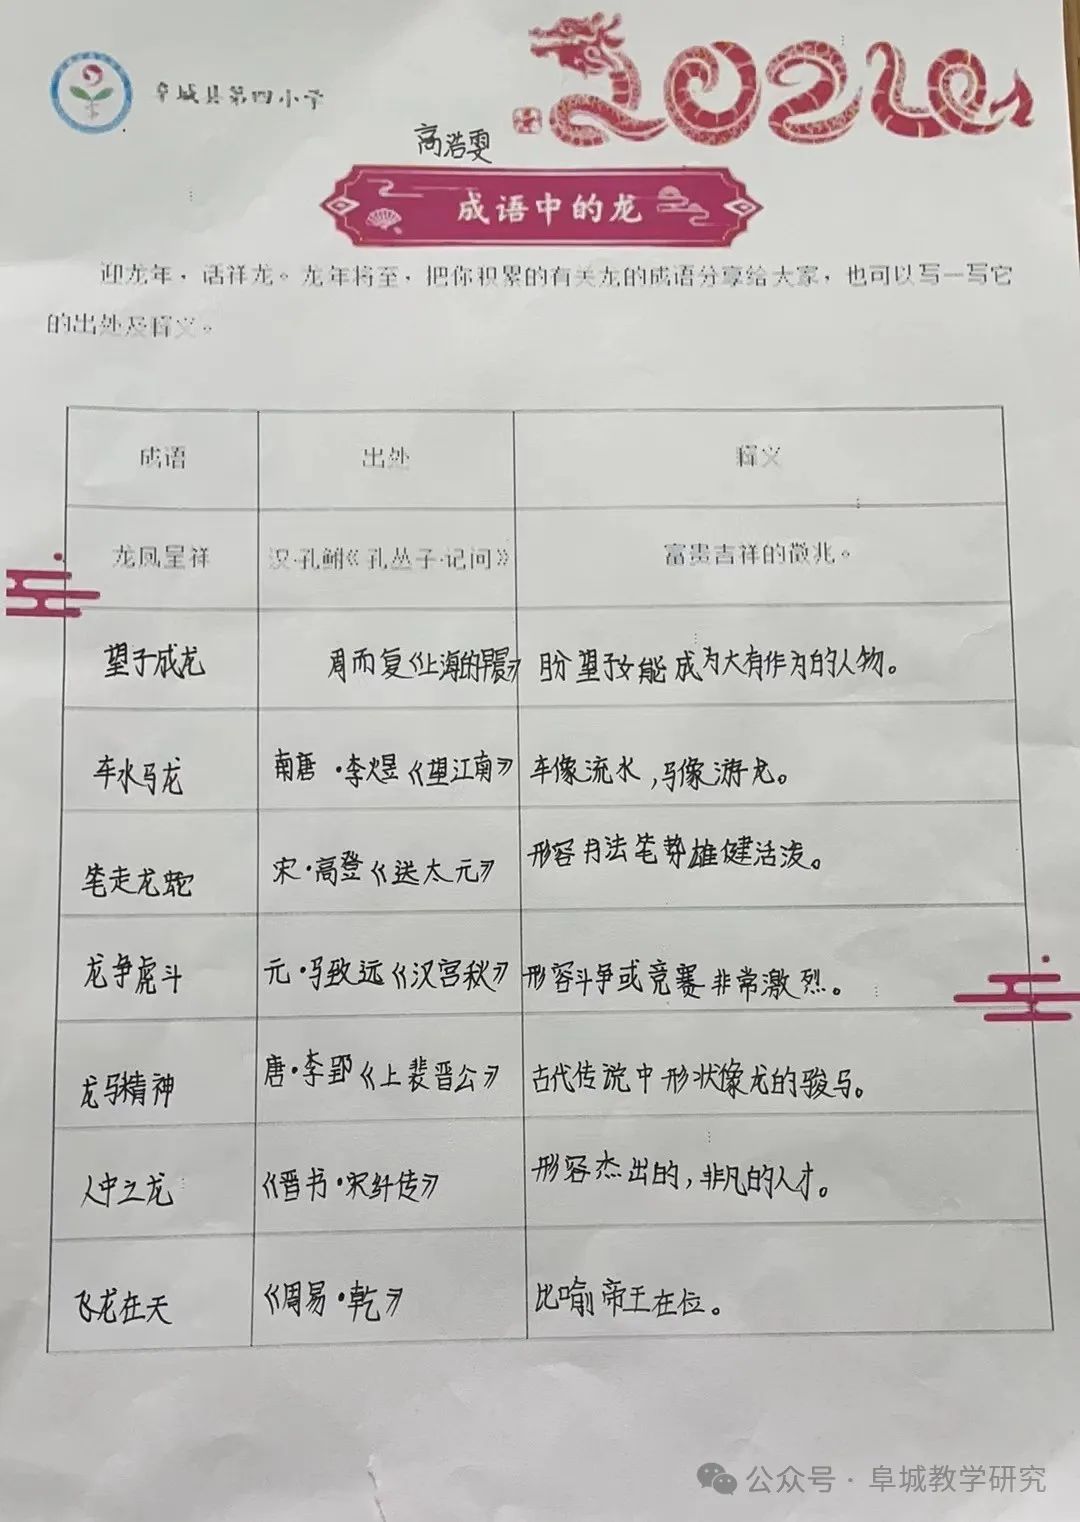 阜城县第四小学
2024
高浩雯
成语中的龙
迎龙年，话祥龙。龙年将至，把你积累的有关龙的成语分享给大家，也可以写一写它
的出处及释义。
成语 出处 释义
龙凤呈祥 汉·孔鲋《孔丛子·记问》 富贵吉祥的徵兆。
望子成龙 周而复《上海的早晨》 盼望子女能成为大有作为的人物。
车水马龙 南唐·李煜《望江南》 车像流水,马像游龙。
笔走龙蛇 宋·高登《送太元》 形容书法笔势雄健活泼。
龙争虎斗 元·马致远《汉宫秋》 形容斗争或竞赛非常激烈。
龙马精神 唐·李郢《上裴晋公》 古代传说中形状像龙的骏马。
人中之龙 《晋书·宋纤传》 形容杰出的,非凡的人才。
飞龙在天 《周易·乾》 比喻帝王在位。
公众号·阜城教学研究